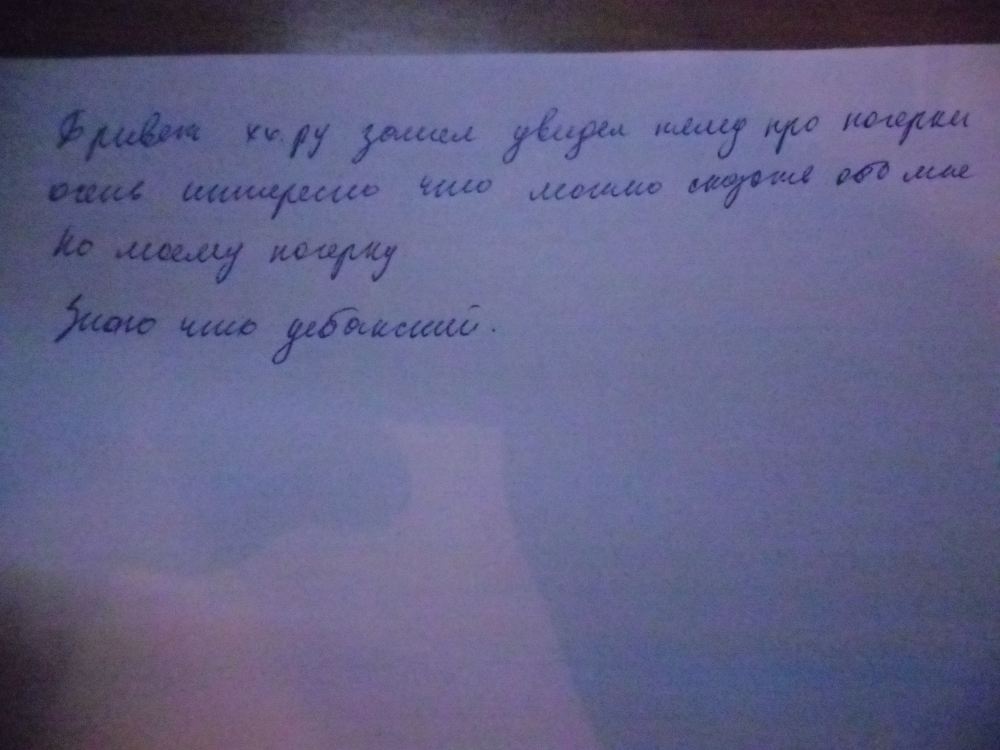 Привет хх.ру зашел увидел тему про почерки
очень интересно что можно сказать обо мне
по моему почерку
Знаю что уебанский.